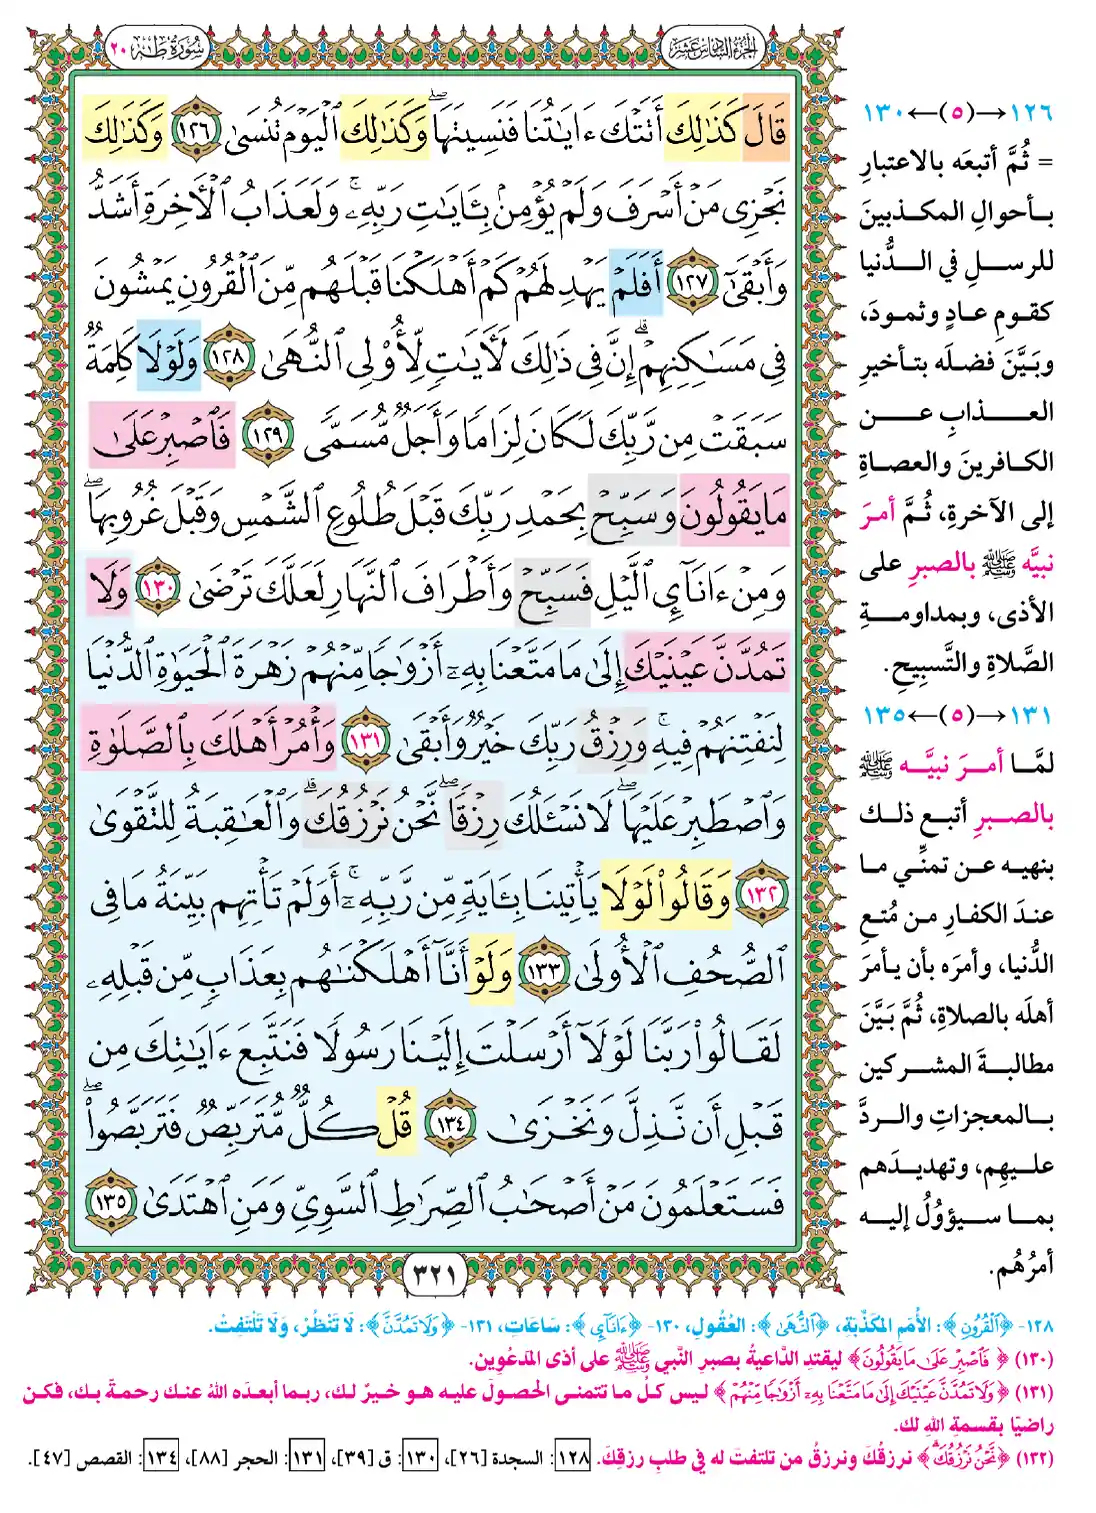 الجزء السادس عشر
سورة طه ٢٠
قَالَ كَذَٰلِكَ أَتَتْكَ ءَايَٰتُنَا فَنَسِيتَهَا ۖ وَكَذَٰلِكَ ٱلْيَوْمَ تُنسَىٰ ١٢٦ وَكَذَٰلِكَ
نَجْزِى مَنْ أَسْرَفَ وَلَمْ يُؤْمِنۢ بِـَٔايَٰتِ رَبِّهِۦ ۚ وَلَعَذَابُ ٱلْءَاخِرَةِ أَشَدُّ
وَأَبْقَىٰٓ ١٢٧ أَفَلَمْ يَهْدِ لَهُمْ كَمْ أَهْلَكْنَا قَبْلَهُم مِّنَ ٱلْقُرُونِ يَمْشُونَ
فِى مَسَٰكِنِهِمْ ۗ إِنَّ فِى ذَٰلِكَ لَءَايَٰتٍ لِّأُو۟لِى ٱلنُّهَىٰ ١٢٨ وَلَوْلَا كَلِمَةٌ
سَبَقَتْ مِن رَّبِّكَ لَكَانَ لِزَامًا وَأَجَلٌ مُّسَمًّى ١٢٩ فَٱصْبِرْ عَلَىٰ
مَا يَقُولُونَ وَسَبِّحْ بِحَمْدِ رَبِّكَ قَبْلَ طُلُوعِ ٱلشَّمْسِ وَقَبْلَ غُرُوبِهَا ۖ
وَمِنْ ءَانَآئِ ٱلَّيْلِ فَسَبِّحْ وَأَطْرَافَ ٱلنَّهَارِ لَعَلَّكَ تَرْضَىٰ ١٣٠ وَلَا
تَمُدَّنَّ عَيْنَيْكَ إِلَىٰ مَا مَتَّعْنَا بِهِۦٓ أَزْوَٰجًا مِّنْهُمْ زَهْرَةَ ٱلْحَيَوٰةِ ٱلدُّنْيَا
لِنَفْتِنَهُمْ فِيهِ ۚ وَرِزْقُ رَبِّكَ خَيْرٌ وَأَبْقَىٰ ١٣١ وَأْمُرْ أَهْلَكَ بِٱلصَّلَوٰةِ
وَٱصْطَبِرْ عَلَيْهَا ۖ لَا نَسْـَٔلُكَ رِزْقًا ۖ نَّحْنُ نَرْزُقُكَ ۗ وَٱلْعَٰقِبَةُ لِلتَّقْوَىٰ
١٣٢ وَقَالُوا۟ لَوْلَا يَأْتِينَا بِـَٔايَةٍ مِّن رَّبِّهِۦٓ ۚ أَوَلَمْ تَأْتِهِم بَيِّنَةُ مَا فِى
ٱلصُّحُفِ ٱلْأُولَىٰ ١٣٣ وَلَوْ أَنَّآ أَهْلَكْنَٰهُم بِعَذَابٍ مِّن قَبْلِهِۦ
لَقَالُوا۟ رَبَّنَا لَوْلَآ أَرْسَلْتَ إِلَيْنَا رَسُولًا فَنَتَّبِعَ ءَايَٰتِكَ مِن
قَبْلِ أَن نَّذِلَّ وَنَخْزَىٰ ١٣٤ قُلْ كُلٌّ مُّتَرَبِّصٌ فَتَرَبَّصُوا۟ ۖ
فَسَتَعْلَمُونَ مَنْ أَصْحَٰبُ ٱلصِّرَٰطِ ٱلسَّوِىِّ وَمَنِ ٱهْتَدَىٰ ١٣٥
٣٢١
١٢٦→(٥)←١٣٠
= ثُمَّ أتبعَه بالاعتبارِ
بأحوالِ المكذبينَ
للرسلِ في الدُّنيا
كقومِ عادٍ وثمودَ،
وبَيَّنَ فضلَه بتأخيرِ
العذابِ عن
الكافرينَ والعصاةِ
إلى الآخرةِ، ثُمَّ أمرَ
نبيَّه ﷺ بالصبرِ على
الأذى، وبمداومةِ
الصَّلاةِ والتَّسبيحِ.
١٣١→(٥)←١٣٥
لمَّا أمرَ نبيَّه ﷺ
بالصبرِ أتبع ذلك
بنهيه عن تمنِّي ما
عندَ الكفارِ من مُتعِ
الدُّنيا، وأمرَه بأن يأمرَ
أهلَه بالصلاةِ، ثُمَّ بَيَّنَ
مطالبةَ المشركين
بالمعجزاتِ والردَّ
عليهِم، وتهديدَهم
بما سيؤُولُ إليه
أمرُهُم.
١٢٨- ﴿ٱلْقُرُونِ﴾: الأُمَمِ المُكَذِّبَةِ، ﴿ٱلنُّهَىٰ﴾: العُقُولِ، ١٣٠- ﴿ءَانَآئِ﴾: سَاعَاتِ، ١٣١- ﴿وَلَا تَمُدَّنَّ﴾: لَا تَنْظُرْ، وَلَا تَلْتَفِتْ.
(١٣٠) ﴿فَٱصْبِرْ عَلَىٰ مَا يَقُولُونَ﴾ ليقتدِ الدَّاعيةُ بصبرِ النَّبي ﷺ على أذى المَدعُوين.
(١٣١) ﴿وَلَا تَمُدَّنَّ عَيْنَيْكَ إِلَىٰ مَا مَتَّعْنَا بِهِۦٓ أَزْوَٰجًا مِّنْهُمْ﴾ ليس كلُّ ما تتمنى الحصولَ عليه هو خيرٌ لك، ربما أبعدَه اللهُ عنك رحمةً بك، فكن
راضيًا بقسمةِ اللهِ لك.
(١٣٢) ﴿نَّحْنُ نَرْزُقُكَ ۗ﴾ نرزقُكَ ونرزقُ من تلتفتَ له في طلبِ رزقِكَ. ١٢٨: السجدة [٢٦]، ١٣٠: ق [٣٩]، ١٣١: الحجر [٨٨]، ١٣٤: القصص [٤٧].